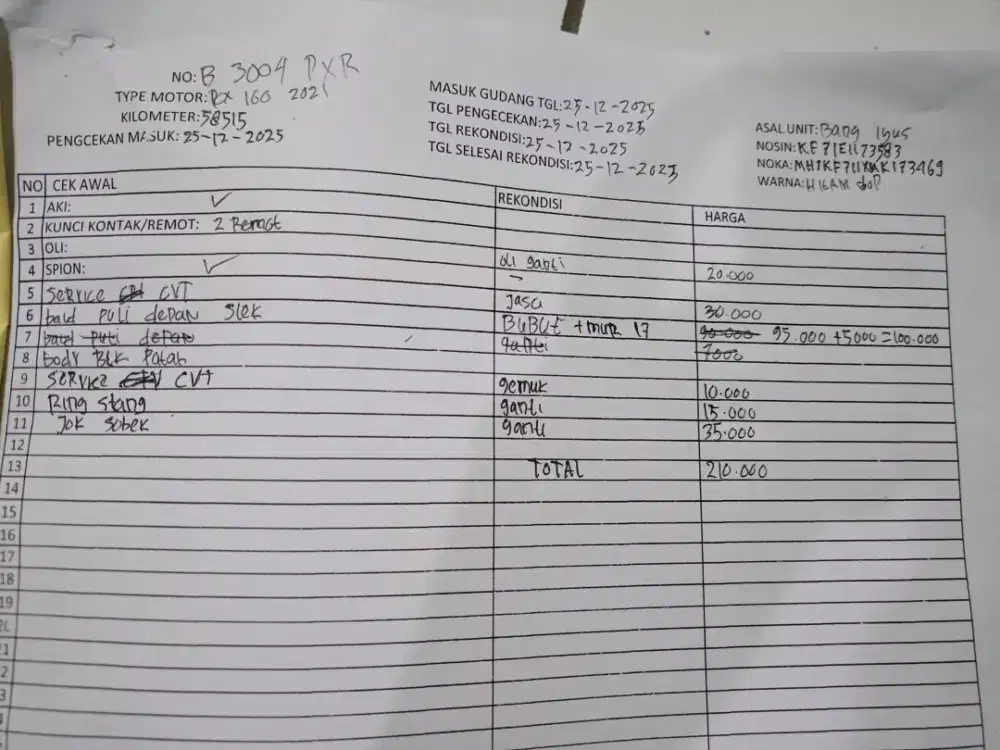 NO: B 3004 PXR
TYPE MOTOR: PCX 160 2021
KILOMETER: 58515
PENGCEKAN MASUK: 25-12-2025
MASUK GUDANG TGL: 25-12-2025
TGL PENGECEKAN: 25-12-2025
TGL REKONDISI: 25-12-2025
TGL SELESAI REKONDISI: 25-12-2025
ASAL UNIT: Bang iyus
NOSIN: KF71E1173583
NOKA:
WARNA: HITAM doP
NO CEK AWAL REKONDISI HARGA
1 AKI: ✓
2 KUNCI KONTAK/REMOT: 2 Remot
3 OLI: di ganti 20.000
4 SPION: ✓ -
5 SERVICE CVT Jasa 30.000
6 baud puli depan slek BUBUT + mur 17 90.000 95.000 + 5000 = 100.000
7 baud puli depan ganti 7000
8 body BLK Patah
9 SERVICE CVT gemuk 10.000
10 Ring stang ganti 15.000
11 Jok sobek ganti 35.000
12
13 TOTAL 210.000
14
15
16
17
18
19